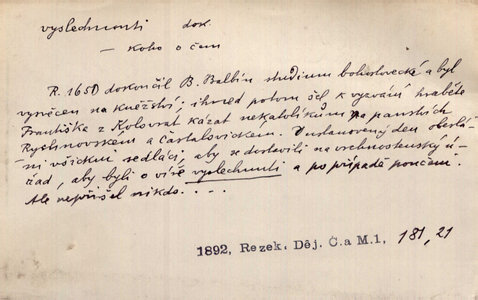 vyslechnouti dok.
— koho o čem
R. 1650 dokončil B. Balbín studium bohoslovecké a byl
vysvěcen na kněžství; ihned potom šel k vyzvání hraběte
Františka z Kolovrat kázat nekatolíkům na panstvích
Rychnovském a Častalovickém. V ustanovený den obesláni
všickni sedláci, aby se dostavili na vrchnostenský úřad,
aby byli o víře vyslechnuti a po případě poučeni.
Ale nepřišel nikdo. . . .
1892, Rezek. Děj. Č. a M. 1, 181, 21